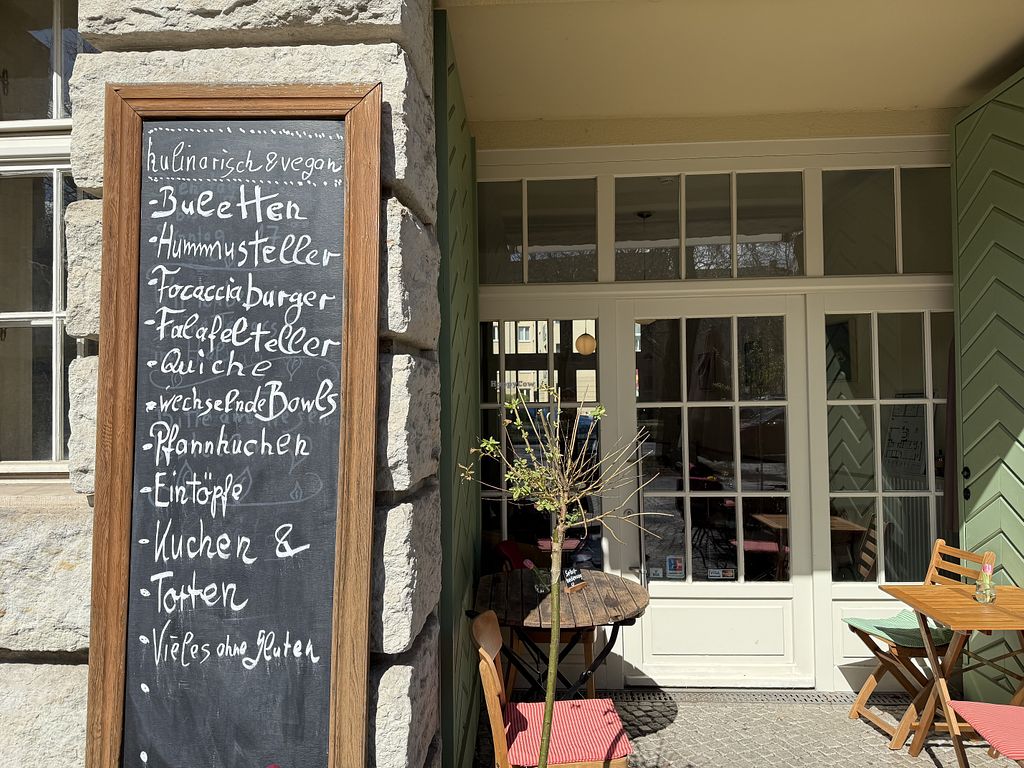 kulinarisch & vegan
- Buletten
- Hummusteller
- Focacciaburger
- Falafelteller
- Quiche
- wechselnde Bowls
- Pfannkuchen
- Eintöpfe
- Kuchen &
- Torten
- Vieles ohne gluten
HappyCow